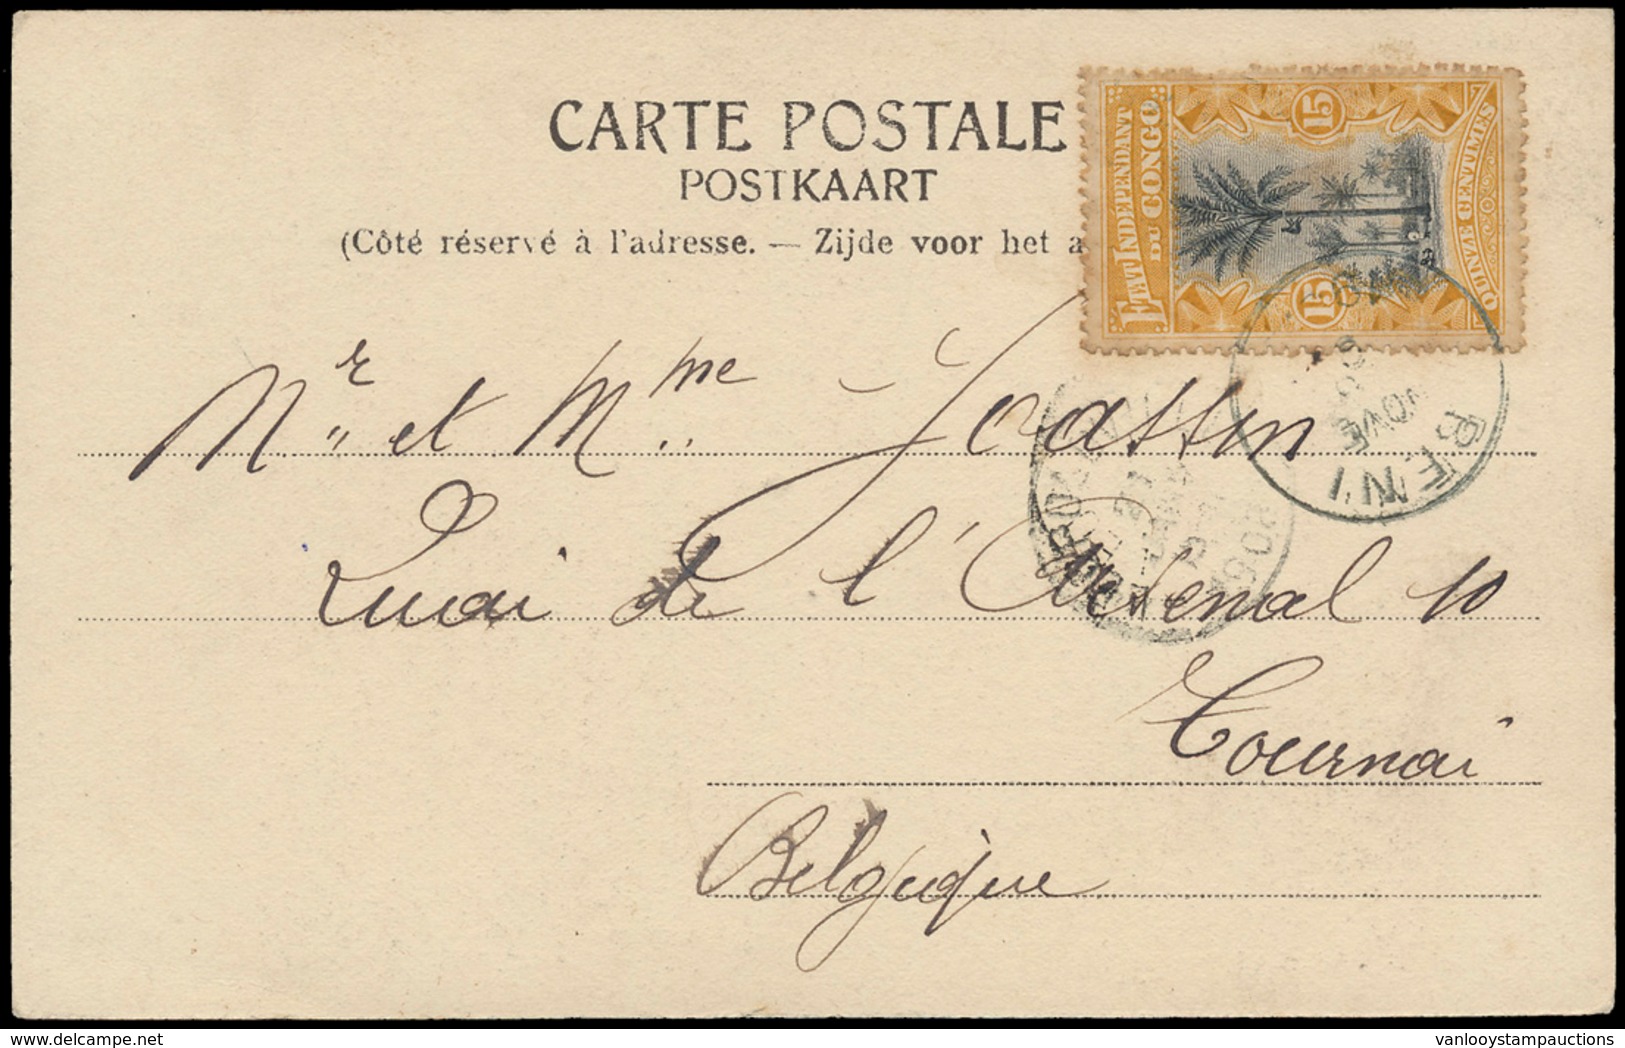 CARTE POSTALE
POSTKAART
(Côté réservé à l'adresse. — Zijde voor het a
ETAT INDÉPENDANT
DU CONGO
15
15
QUINZE CENTIMES
BENI
Mr et Mme Joassin
Quai de l'Arsenal 10
Tournai
Belgique
delcampe.net
vanlooystampauctions